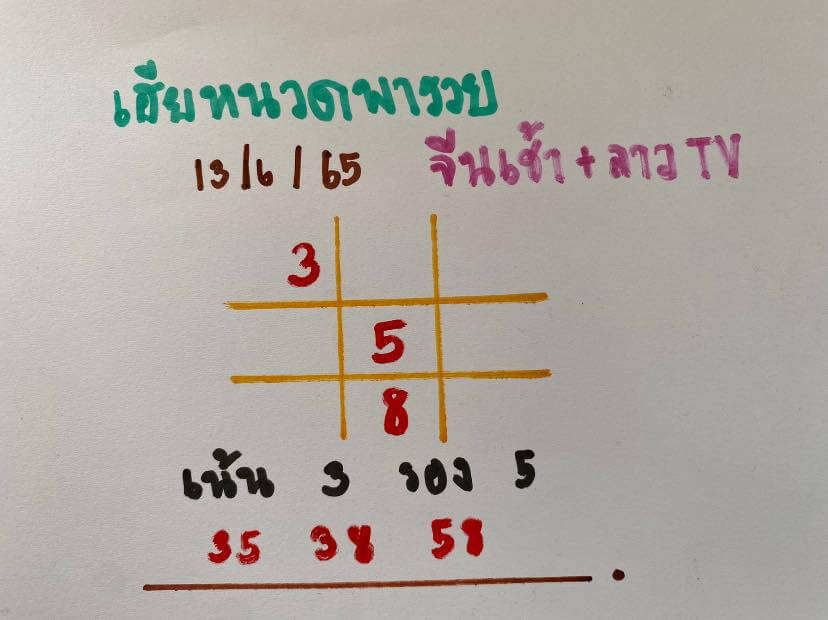 เฮียหนวดพารวย
13/6/65 จีนเช้า+ลาว TV
3
5
8
เน้น 3 รอง 5
35 38 58